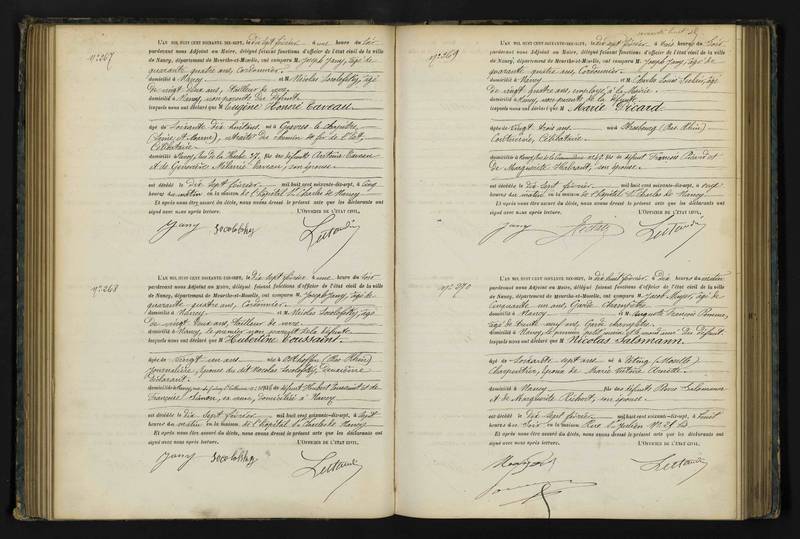 N° 267
L'AN MIL HUIT CENT SOIXANTE-DIX-SEPT, le dix sept février à une heure du soir
pardevant nous Adjoint au Maire, délégué faisant fonctions d'officier de l'état civil de la ville
de Nancy, département de Meurthe-et-Moselle, ont comparu M. Joseph Jany, âgé de
quarante quatre ans, Cordonnier
domicilié à Nancy et M. Nicolas Socolofsky, âgé
de vingt deux ans, tailleur de
domicilié à Nancy, non parents du défunt
lesquels nous ont déclaré que M. Eugène Honoré Caveau
âgé de Soixante dix huit ans né à Guavres le chapitre
(Seine et Marne), retraité du chemin de fer de l'Est,
Célibataire
domicilié Nancy, rue de la 37, fils des défunts Antoine Caveau
et de Geneviève Mélanie Caveau, son épouse
est décédé le dix sept février mil huit cent soixante-dix-sept, à cinq
heures du matin en la maison de l'hôpital St Charles de Nancy
Et après nous être assuré du décès, nous avons dressé le présent acte que les déclarants ont
signé avec nous après lecture. L'OFFICIER DE L'ÉTAT CIVIL,
Jany
N° 268
L'AN MIL HUIT CENT SOIXANTE-DIX-SEPT, le dix sept février à une heure du soir
pardevant nous Adjoint au Maire, délégué faisant fonctions d'officier de l'état civil de la ville
de Nancy, département de Meurthe-et-Moselle, ont comparu M. Joseph Jany, âgé de
quarante quatre ans, Cordonnier
domicilié à Nancy et M. Nicolas Socolofsky, âgé
de vingt deux ans, tailleur de
domicilié à Nancy, le premier non parent de la défunte
lesquels nous ont déclaré que Hubertine Toussaint
âgée de vingt un ans née à (Bas Rhin)
Journalière, épouse du dit Nicolas Socolofsky, deuxième
déclarant
domiciliée à Nancy, fille de défunt Hubert Toussaint et de
Françoise Simon, sa veuve, domiciliée à Nancy
est décédée le dix sept février mil huit cent soixante-dix-sept, à sept
heures du matin en la maison de l'hôpital St Charles de Nancy
Et après nous être assuré du décès, nous avons dressé le présent acte que les déclarants ont
signé avec nous après lecture. L'OFFICIER DE L'ÉTAT CIVIL,
Jany
N° 269
L'AN MIL HUIT CENT SOIXANTE-DIX-SEPT, le dix sept février à trois heures du soir
pardevant nous Adjoint au Maire, délégué faisant fonctions d'officier de l'état civil de la ville
de Nancy, département de Meurthe-et-Moselle, ont comparu M. Joseph Jany, âgé de
quarante quatre ans, Cordonnier
domicilié à Nancy et M. Charles Louis, âgé
de vingt quatre ans, employé à la Mairie
domicilié à Nancy, non parents de la défunte
lesquels nous ont déclaré que Marie Picard
âgée de vingt trois ans née à Strasbourg (Bas Rhin)
Couturière, Célibataire
domiciliée à Nancy, fille de défunt François Picard et
de Marguerite, son épouse
est décédée le dix sept février mil huit cent soixante-dix-sept, à onze
heures du matin en la maison de l'hôpital St Charles de Nancy
Et après nous être assuré du décès, nous avons dressé le présent acte que les déclarants ont
signé avec nous après lecture. L'OFFICIER DE L'ÉTAT CIVIL,
Jany
N° 270
L'AN MIL HUIT CENT SOIXANTE-DIX-SEPT, le dix huit février à dix heures du matin
pardevant nous Adjoint au Maire, délégué faisant fonctions d'officier de l'état civil de la ville
de Nancy, département de Meurthe-et-Moselle, ont comparu M. Jacob Mayer, âgé de
cinquante un ans, Garde Champêtre
domicilié à Nancy et M. François
âgé de trente neuf ans, Garde champêtre
domicilié à Nancy, le premier
lesquels nous ont déclaré que Nicolas Salomann
âgé de Soixante sept ans né à (Moselle)
Charpentier, époux de Marie Victoire
domicilié à Nancy fils des défunts Pierre Salomann
et de Marguerite Richert, son épouse
est décédé le dix sept février mil huit cent soixante-dix-sept, à huit
heures du soir en la maison Rue St Julien N° 21 bis
Et après nous être assuré du décès, nous avons dressé le présent acte que les déclarants ont
signé avec nous après lecture. L'OFFICIER DE L'ÉTAT CIVIL,